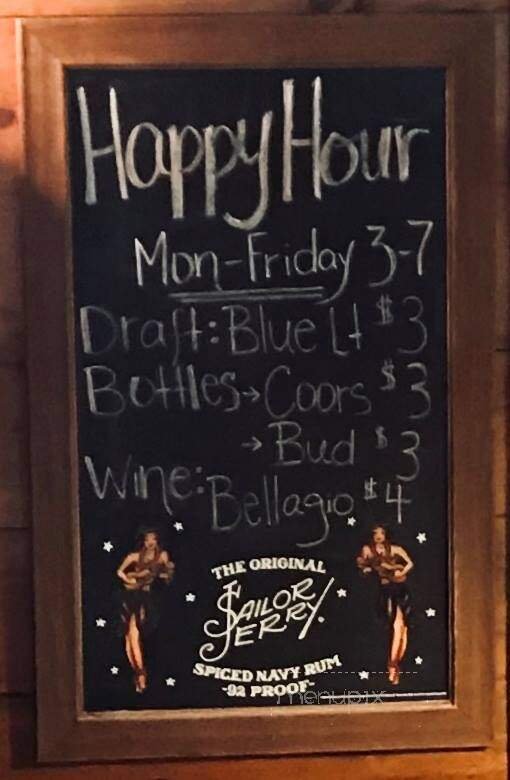 Happy Hour
Mon-Friday 3-7
Draft: Blue Lt $3
Bottles→Coors $3
→ Bud $3
Wine: Bellagio $4
THE ORIGINAL
SAILOR
JERRY.
SPICED NAVY RUM
-92 PROOF-
menupix